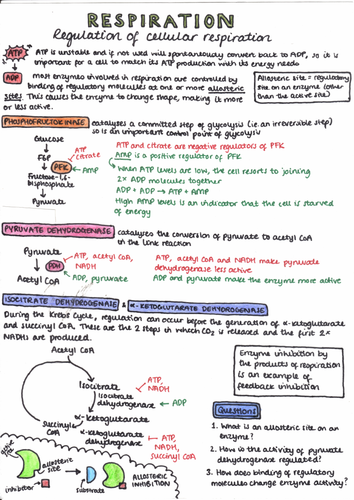 RESPIRATION
Regulation of cellular respiration
ATP
ADP
ATP is unstable and if not used will spontaneously convert back to ADP, so it is
important for a cell to match its ATP production with its energy needs
most enzymes involved in respiration are controlled by
binding of regulatory molecules at one or more allosteric
sites. This causes the enzyme to change shape, making it more
or less active.
Allosteric site = regulatory
site on an enzyme (other
than the active site)
PHOSPHOFRUCTOKINASE catalyses a committed step of glycolysis (i.e. an irreversible step)
so is an important control point of glycolysis
Glucose
F6P
PFK
ATP
citrate
AMP
Fructose-1,6-
bisphosphate
Pyruvate
ATP and citrate are negative regulators of PFK
AMP is a positive regulator of PFK
When ATP levels are low, the cell resorts to joining
2x ADP molecules together
ADP + ADP → ATP + AMP
High AMP levels is an indicator that the cell is starved
of energy
PYRUVATE DEHYDROGENASE catalyses the conversion of pyruvate to acetyl CoA
in the link reaction
Pyruvate
PDH
ATP, acetyl CoA,
NADH
ADP, pyruvate
Acetyl CoA
ATP, acetyl CoA and NADH make pyruvate
dehydrogenase less active
ADP and pyruvate make the enzyme more active
ISOCITRATE DEHYDROGENASE & α-KETOGLUTARATE DEHYDROGENASE
During the Krebs Cycle, regulation can occur before the generation of α-ketoglutarate
and succinyl CoA. These are the 2 steps in which CO2 is released and the first 2x
NADHs are produced.
Acetyl CoA
Isocitrate
isocitrate
dehydrogenase
ATP,
NADH
ADP
α-ketoglutarate
Succinyl CoA
α-ketoglutarate
dehydrogenase
ATP,
NADH,
succinyl CoA
Enzyme inhibition by
the products of respiration
is an example of
feedback inhibition
Questions
1. What is an allosteric site on an
enzyme?
2. How is the activity of pyruvate
dehydrogenase regulated?
3. How does binding of regulatory
molecules change enzyme activity?
active
site
allosteric
site
inhibitor
substrate
ALLOSTERIC
INHIBITION